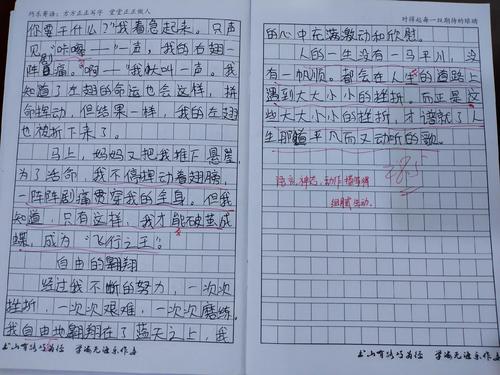 巧乐寄语:方方正正写字 堂堂正正做人
你要干什么?"我着急起来。只声
见"咔嚓——"一声,我的右翅一
阵剧痛。"啊——"我大叫一声。我
知道了左翅的命运也会这样,拼
命挥动,但结果一样,我的左翅
也被折下来了。
马上,妈妈又把我推下悬崖,
为了活命,我不停挥动着翅膀,
一阵阵剧痛贯穿我的全身。但我
知道,只有这样,我才能破茧成
蝶,成为"飞行之王"。
自由的翱翔
经过我不断的努力,一次次
挫折,一次次艰难,一次次磨练。
我自由地翱翔在了蓝天之上,我
书山有路勤为径 学海无涯乐作舟
对得起每一双期待的眼睛
的心中在满激动和欣慰。
人的一生没有一马平川,没
有一帆风顺。都会在人生的道路上
遇到大大小小的挫折。而正是这
些大大小小的挫折,才谱就了人
生那道平凡而又动听的歌。
语言、神态、动作描写得
细腻生动。
书山有路勤为径 学海无涯乐作舟